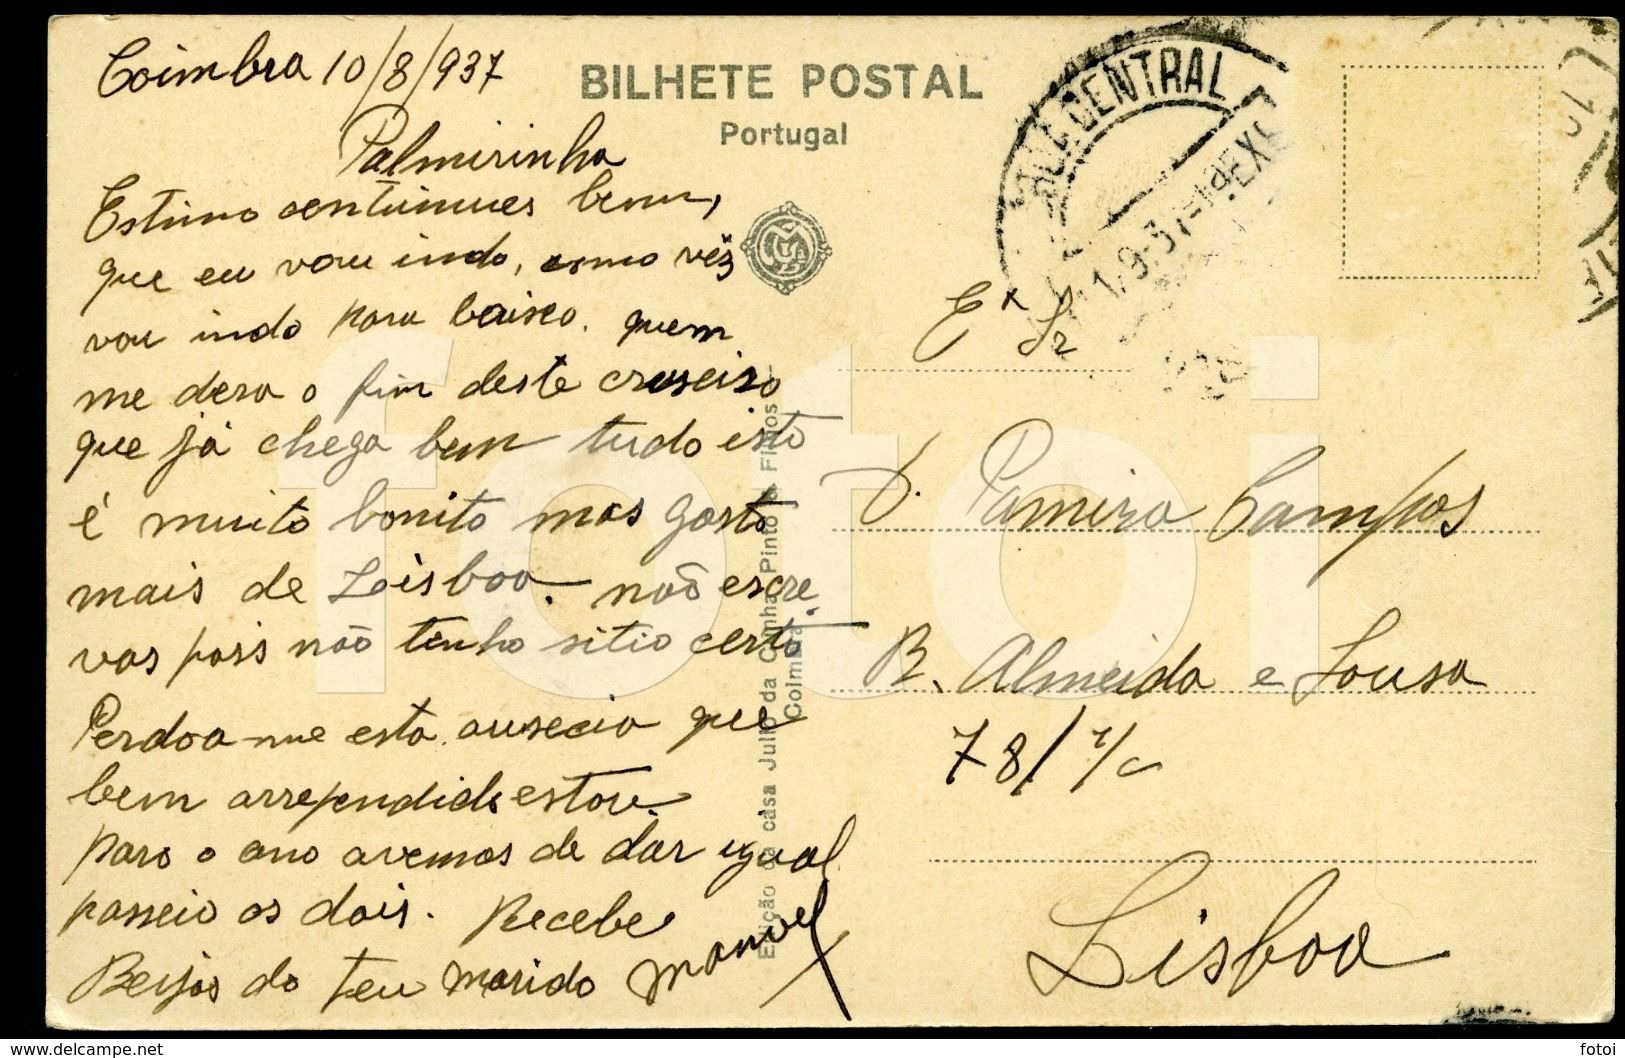 Coimbra 10/8/937
Palmirinha
Estimo continues bem,
que eu vou indo, como vês
vou indo para baixo. quem
me dera o fim deste cruseiro
que já chega bem tudo isto
é muito bonito mas gosto
mais de Lisboa. não escre
vas pois não tenho sitio certo
Perdoa-me esta ausecia que
bem arrependido estou.
para o ano avemos de dar igual
passeio os dois. Recebe
Beijos do teu marido Manuel
BILHETE POSTAL
Portugal
Edição da casa Julio da Cunha Pinto & Filhos -
Coimbra
CENTRAL
Ex Sr
D. Pamira Campos
R. Almeida e Sousa
78/ r/c
Lisboa
fotoi
www.delcampe.net
fotoi